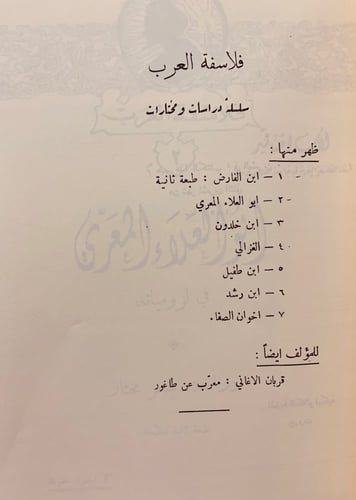 فلاسفة العرب
سلسلة دراسات ومختارات
ظهر منها :
١ – ابن الفارض : طبعة ثانية
٢ – ابو العلاء المعري
٣ – ابن خلدون
٤ – الغزالي
٥ – ابن طفيل
٦ – ابن رشد
٧ – اخوان الصفاء
للمؤلف ايضاً :
قربان الاغاني : معرّب عن طاغور